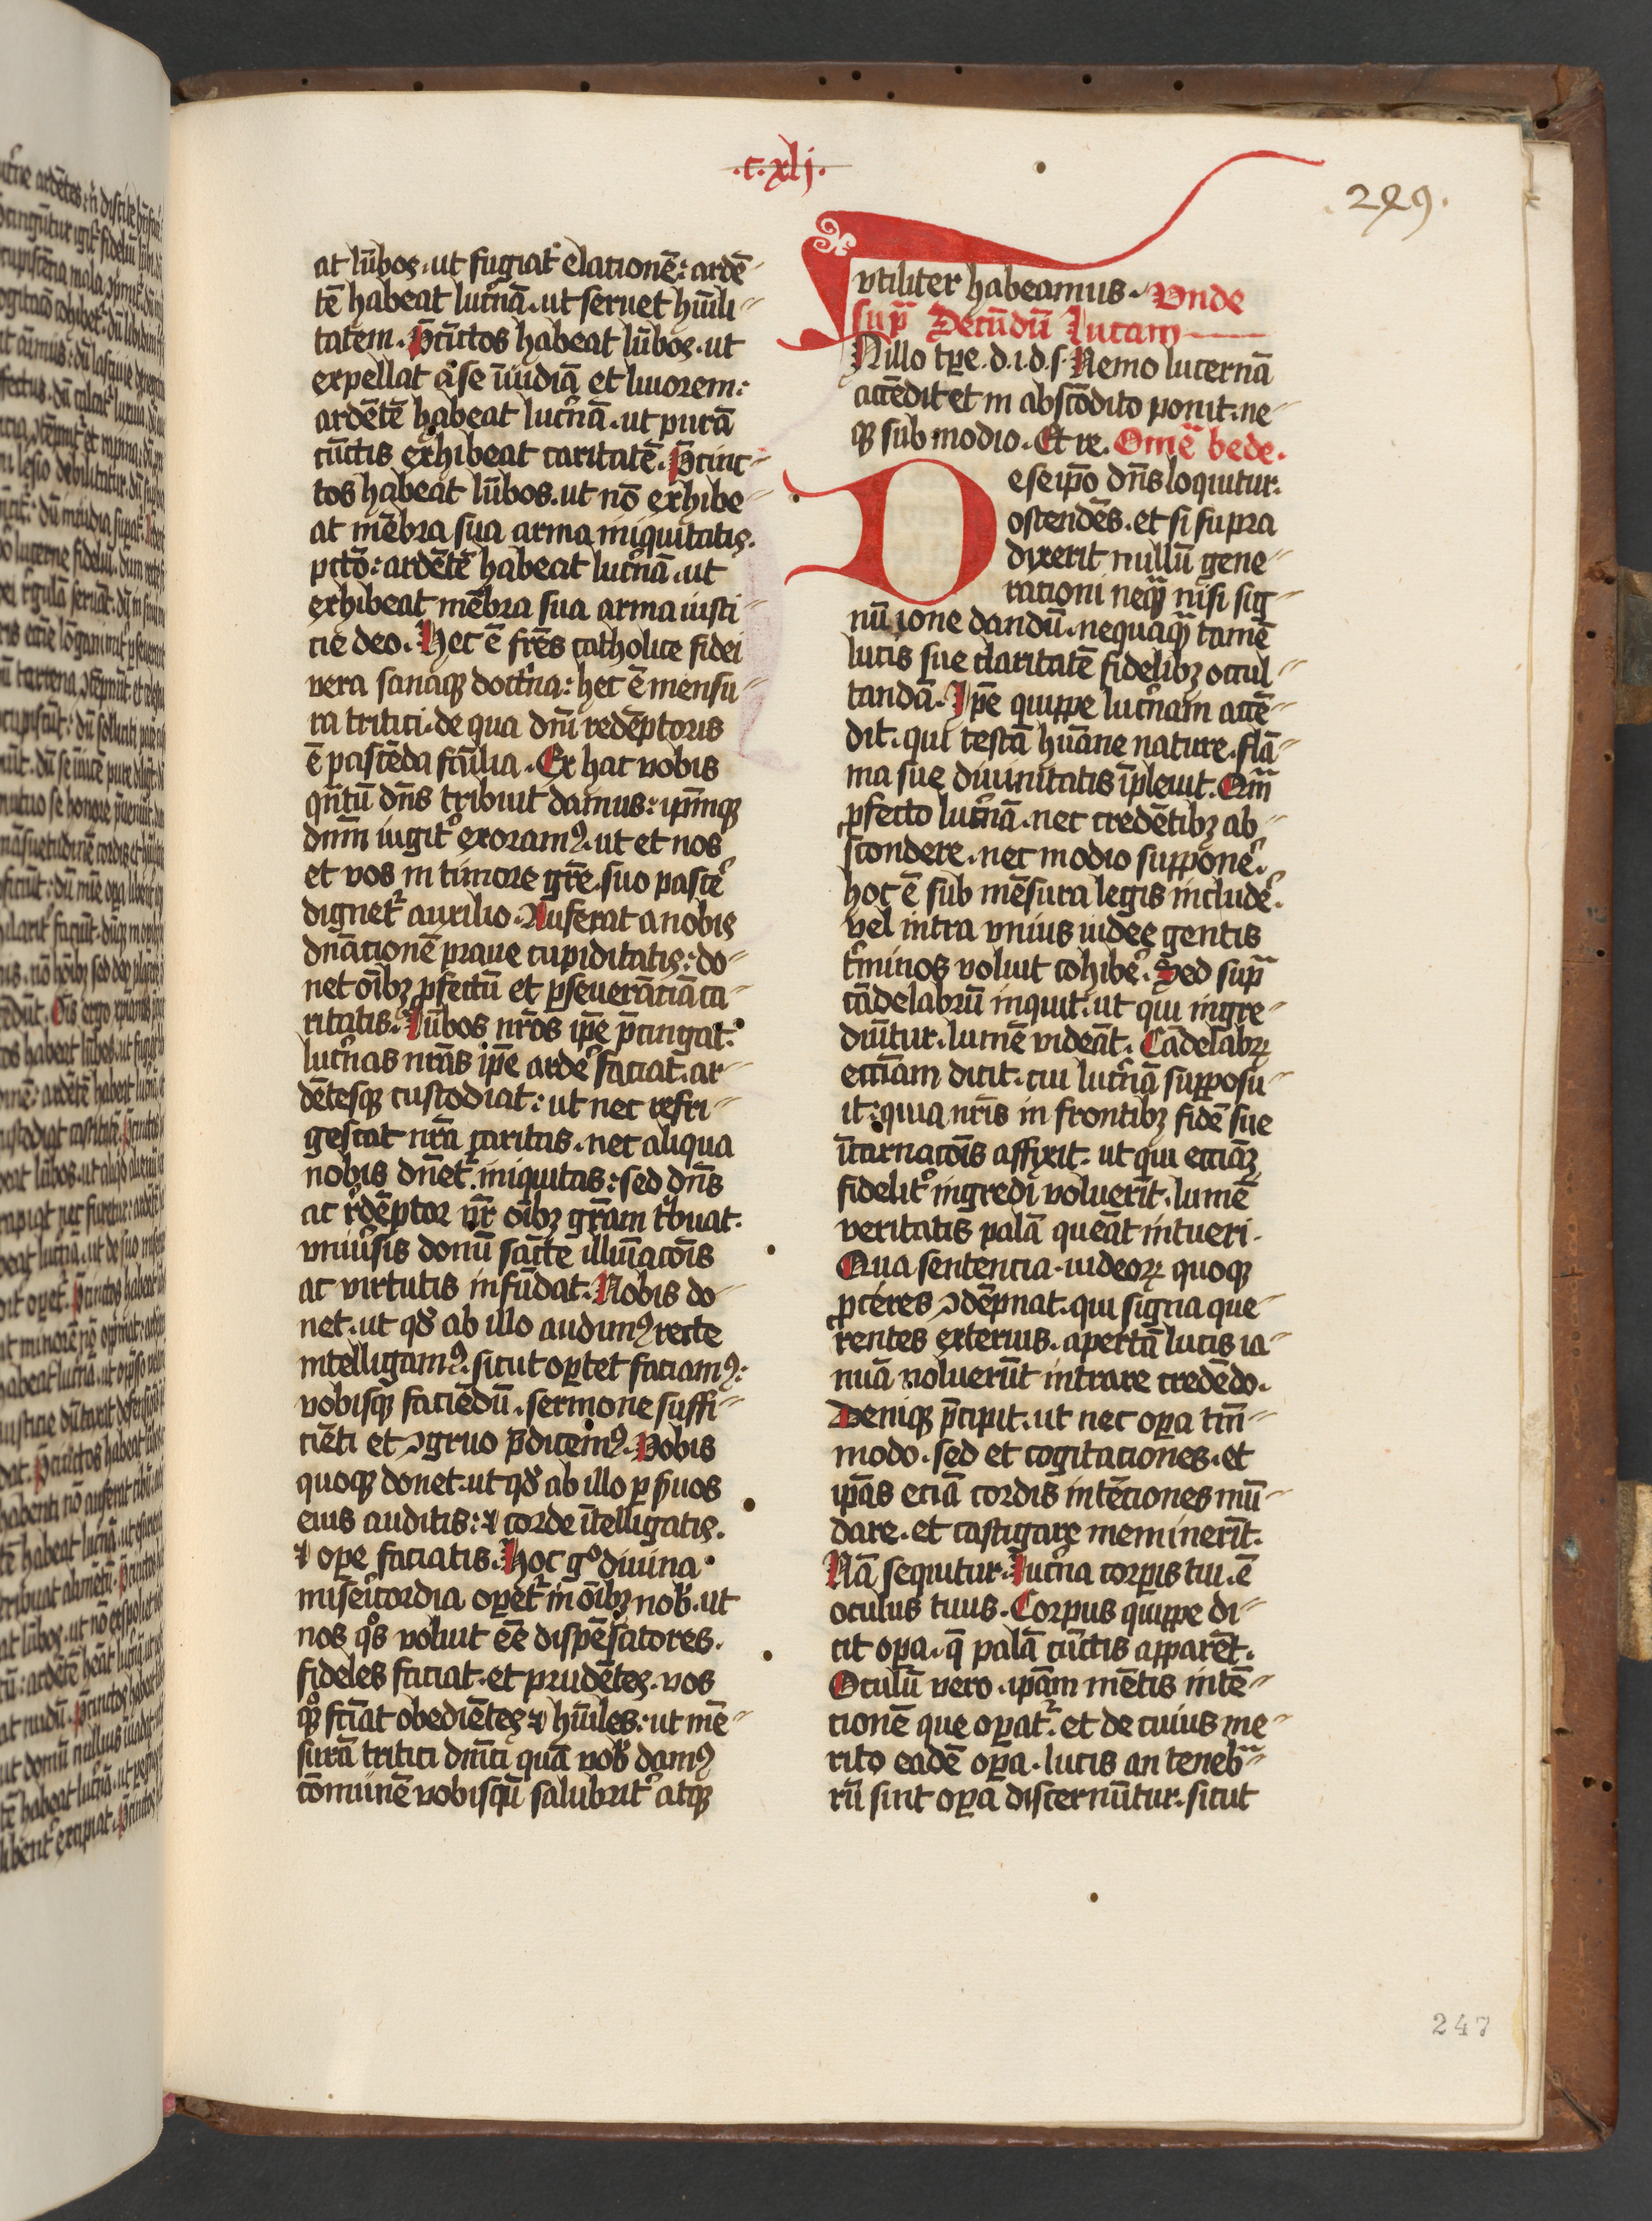 .c.xlj.
249.
at lūbos. ut fugiat᷑ elationē: ardē
tē habeat luc̓nā. ut seruet hūili
tatem. P̄cīctos habeat lūbos. ut
expellat a se īuidiā et liuorem:
ardētē habeat luc̓nā. ut purā
cūctis exhibeat caritatē. P̄cinc
tos habeat lūbos. ut nō exhibe
at mēbra sua arma iniquitatis.
pctō: ardētē habeat luc̓nā. ut
exhibeat mēbra sua arma iusti
cie deo. Hec ē fr̄es catholice fidei
vera sanaqꝫ doct̓na: hec ē mensu
ra tritici. de qua dn̄i redēptoris
ē pascēda fāilia. Ex hac vobis
qn̄tū dn̄s tribuit damus: ip̄mqꝫ
dn̄m iugit̓ exoramꝰ. ut et nos
et vos in timore gr̄e suo pasce̓
dignet᷑ auxilio. Auferat a nobis
dn̄acionē praue cupiditatis: do
net oībꝫ ꝓfectū et ꝑseuerāciā ca
ritatis. Lūbos nr̄os ip̄e p̄cingat.
luc̓nas nr̄as ip̄e arde̓ faciat. ar
dētesqꝫ custodiat: ut nec refri
gescat nr̄a caritas. nec aliqua
nobis dn̄et᷑ iniquitas: sed dn̄s
ac r̓dēptor nr̄ oībꝫ gr̄am t̓buat.
vniu̓sis donū sācte illuīacōis
ac virtutis infūdat. Nobis do
net. ut qd̓ ab illo audimꝰ recte
intelligamꝰ. sicut oꝑtet faciamꝰ:
vobisqꝫ faciēdū. sermone suffi
ciēti et ꝯgruo p̄dicemꝰ. Vobis
quoqꝫ donet. ut qd̓ ab illo ꝑ s̓uos
eius auditis: ⁊ corde ītelligatis.
⁊ oꝑe faciatis. Hoc gͦ diuina
miseri̓cordia oꝑet᷑ in oībꝫ nob̓. ut
nos qͦs voluit ēē dispēsatores.
fideles faciat. et prudētes. vos
qͦꝫ fc̄iat obediētes ⁊ hūiles: ut mē
surā tritici dn̄ici quā vob̓ damꝰ
cōmunē vobisqū salubrit̓ atqꝫ
vtiliter habeamus. Vnde
sup̄ Secūdū Lucam
IN illo tꝑe. d. i. d. s. Nemo lucernā
accēdit et in abscōdito ponit. ne
qꝫ sub modio. Et re. Omē bede.
De se ip̄o dn̄s loquitur.
ostendēs. et si supra
dixerit nullū gene
rationi neqꝫ nisi sig
nū ione dandū. nequaqꝫ tamē
lucis sue claritatē fidelibꝫ occul
tandā. Ip̄e quippe luc̓nam accē
dit. qui testā hūane nature. flā
ma sue diuinitatis īpleuit. Qm̄
ꝓfecto luc̓nā. nec credētibꝫ ab
scondere. nec modio suppone̓.
hoc ē sub mēsura legis include̓.
vel intra vnius iudee gentis
t̓minos voluit cohibe̓. Sed sup̄
cādelabrū inquit. ut qui ingre
diūtur. lumē videāt. Cādelabrꝝ
ecc̄iam dicit. cui luc̓nā supposu
it: quia nr̄is in frontibꝫ fidē sue
īcarnacōis affixit. ut qui ecciāꝫ
fidelit̓ ingredi voluerīt. lumē
veritatis palā queāt intueri.
Qua sentencia. iudeoꝝ quoqꝫ
ꝓceres ꝯdēpnat. qui signa que
rentes exterius. apertā lucis ia
nuā noluerūt intrare credēdo.
Deniqꝫ p̄cipit. ut nec oꝑa tm̄
modo. sed et cogitaciones. et
ip̄as eciā cordis intēciones mū
dare. et castigare meminerīt.
Nā sequitur. Luc̓na corꝑis tui. ē
oculus tuus. Corpus quippe di
cit oꝑa. q̄ palā cūctis apparēt.
Oculū vero. ip̄am mētis intē
cionē que oꝑat᷑. et de cuius me
rito eadē oꝑa. lucis an tenebr̄
rū sint oꝑa discernūtur. sicut
247